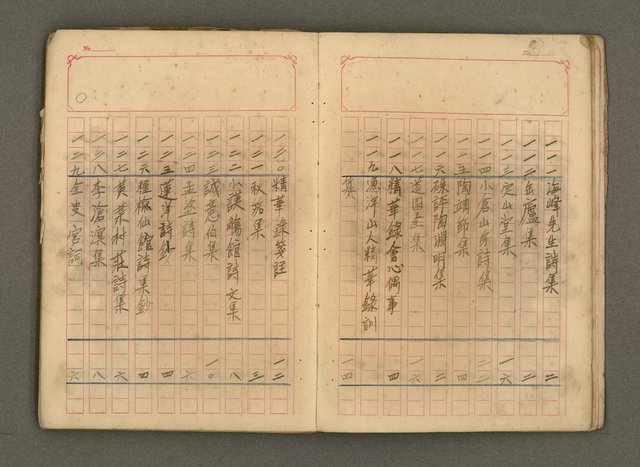 No.
一一一 海峰先生詩集 二
一一二 缶廬集 二
一一三 定山堂集 一六
一一四 小倉山房詩集 一二
一一五 陶靖節集 四
一一六 硃評陶淵明集 二
一一七 道園全集 一六
一一八 精華錄會心偶事 四
一一九 漁洋山人精華錄訓
集 一四
No.
一二〇 精華錄箋註 一二
一二一 秋笳集 三
一二二 小謨觴館詩文集 八
一二三 誠意伯集 一〇
一二四 孟塗詩集 六
一二五 蓮洋詩鈔 四
一二六 種榆仙館詩集鈔 四
一二七 黃葉村莊詩集 六
一二八 李滄溟集 八
一二九 金叟宮詞 六